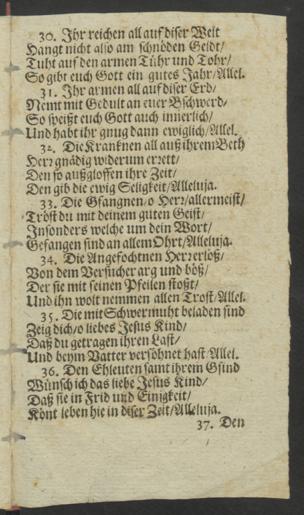 30. Jhr reichen all auf diser Welt
Hangt nicht also am schnöden Geldt/
Tuht auf den armen Tühr und Tohr/
So gibt euch Gott ein gutes Jahr/Allel.
31. Jhr armen all auf diser Erd/
Nemt mit Gedult an euer Bschwerd/
So speißt euch Gott auch innerlich/
Und habt ihr gnug dann ewiglich/Allel.
32. Die Kranknen all auß ihrem Beth
Herr gnädig widerum errett/
Den so außgloffen ihre Zeit/
Den gib die ewig Seligkeit/Alleluja.
33. Die Gfangnen/o Herr/allermeist/
Tröst du mit deinem guten Geist/
Insonders welche um dein Wort/
Gefangen sind an allem Ohrt/Alleluja.
34. Die Angefochtnen Herr erlöß/
Von dem Versucher arg und böß/
Der sie mit seinen Pfeilen stoßt/
Und ihn wolt nemmen allen Trost/Allel.
35. Die mit Schwermuht beladen sind
Zeig dich/o liebes Jesus Kind/
Daß du getragen ihren Last/
Und beym Vatter versöhnet hast/Allel.
36. Den Ehleuten samt ihrem Gsind
Wünsch ich das liebe Jesus Kind/
Daß sie in Frid und Einigkeit/
Könt leben hie in diser Zeit/Alleluja.
37. Den